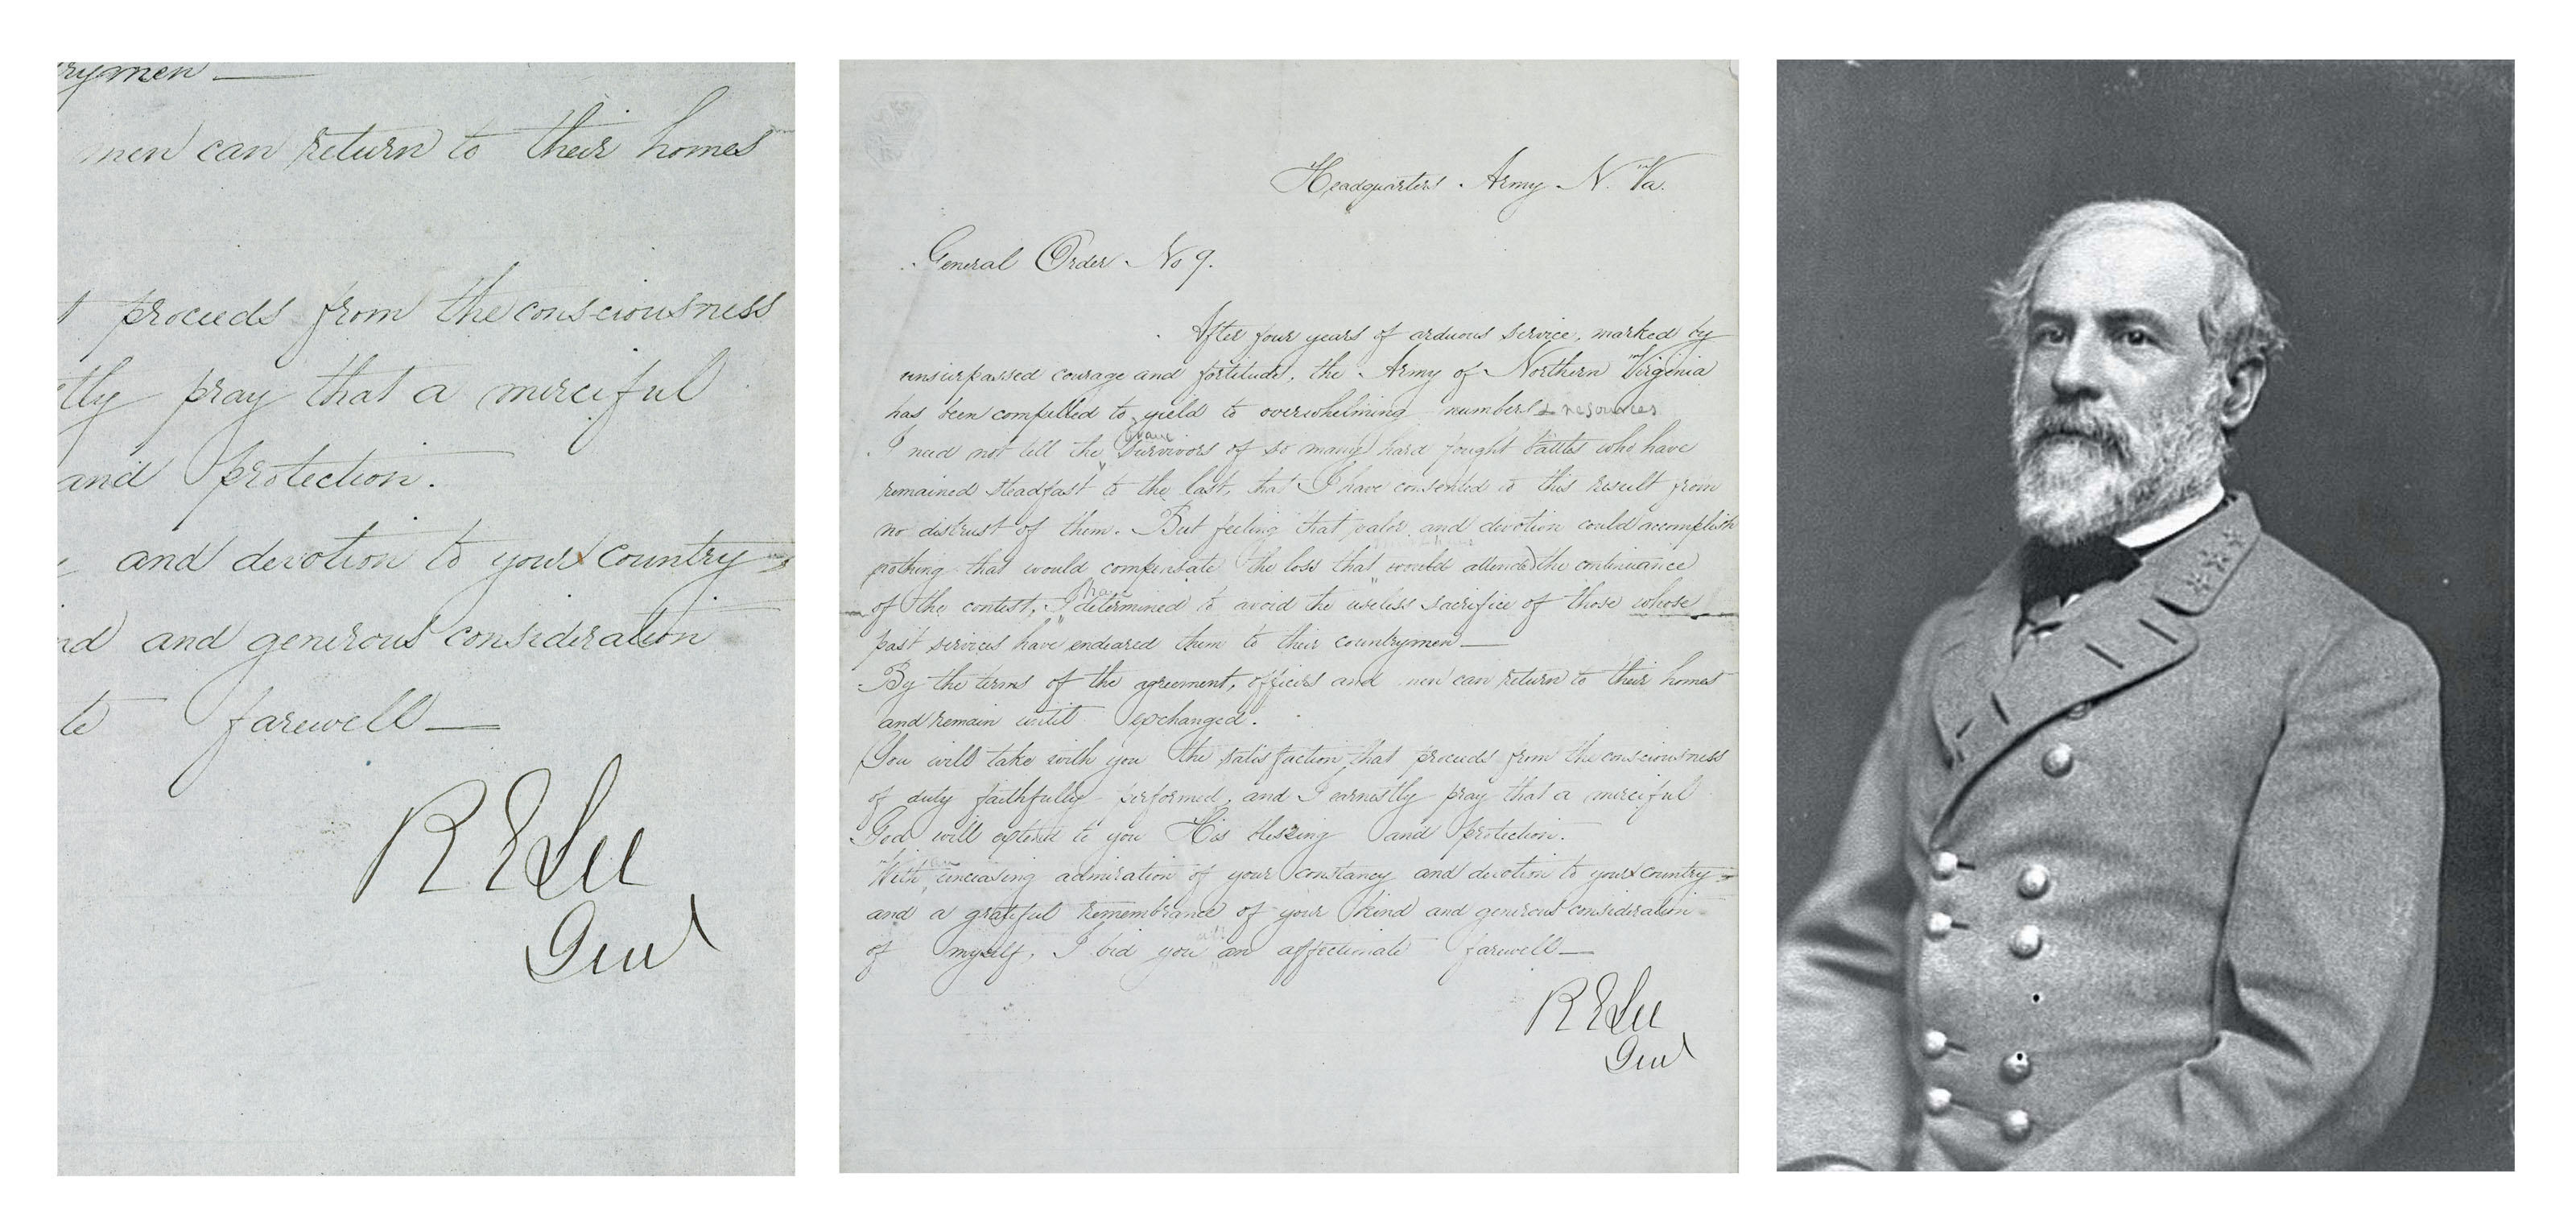 rymen —
men can return to their homes
t proceeds from the consciousness
etly pray that a merciful
and protection.
and devotion to your country
nd and generous consideration
te farewell —
R E Lee
Genl
Headquarters Army N. Va.
General Order No 9.
After four years of arduous service, marked by
unsurpassed courage and fortitude, the Army of Northern Virginia
has been compelled to yield to overwhelming numbers & resources
I need not tell the brave survivors of so many hard fought battles who have
remained steadfast to the last, that I have consented to this result from
no distrust of them. But feeling that valor and devotion could accomplish
nothing that would compensate the loss that would attend the continuance
of the contest, I have determined to avoid the useless sacrifice of those whose
past services have endeared them to their countrymen —
By the terms of the agreement, officers and men can return to their homes
and remain until exchanged.
You will take with you the satisfaction that proceeds from the consciousness
of duty faithfully performed, and I earnestly pray that a merciful
God will extend to you His blessing and protection.
With an unceasing admiration of your constancy and devotion to your country
and a grateful remembrance of your kind and generous consideration
of myself, I bid you an affectionate farewell —
R E Lee
Genl